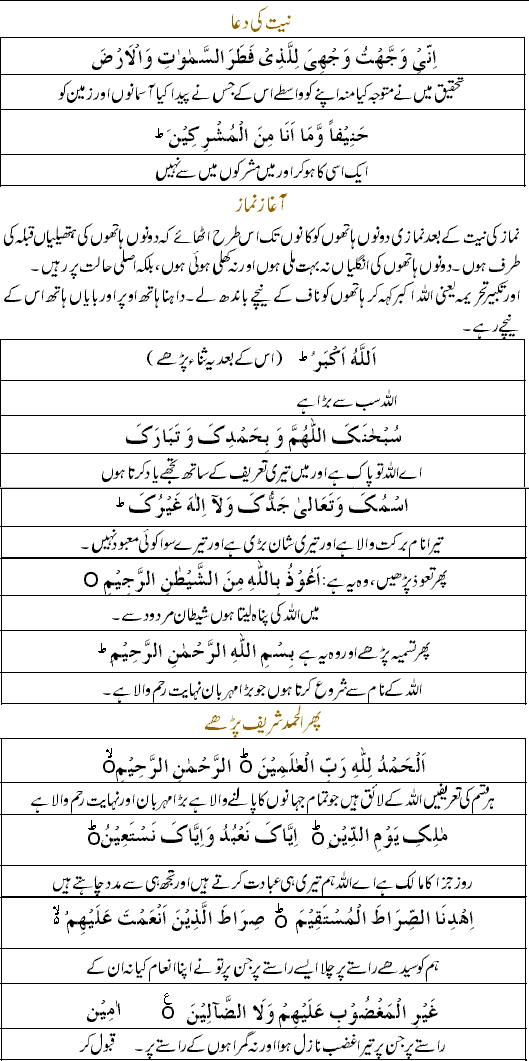 نیت کی دعا
اِنِّیْ وَجَّھْتُ وَجْھِیَ لِلَّذِیْ فَطَرَ السَّمٰوٰتِ وَالْاَرْضَ
تحقیق میں نے متوجہ کیا منہ اپنے کو واسطے اس کے جس نے پیدا کیا آسمانوں اور زمین کو
حَنِیْفاً وَّمَا اَنَا مِنَ الْمُشْرِکِیْنَ ط
ایک اسی کا ہو کر اور میں مشرکوں میں سے نہیں
آغاز نماز
نماز کی نیت کے بعد نمازی دونوں ہاتھوں کو کانوں تک اس طرح اٹھائے کہ دونوں ہاتھوں کی ہتھیلیاں قبلہ کی
طرف ہوں ۔ دونوں ہاتھوں کی انگلیاں نہ بہت ملی ہوں اور نہ کھلی ہوئی ہوں ، بلکہ اصلی حالت پر رہیں ۔
اور تکبیر تحریمہ یعنی اللہ اکبر کہہ کر ہاتھوں کو ناف کے نیچے باندھ لے ۔ داہنا ہاتھ اوپر اور بایاں ہاتھ اس کے
نیچے رہے ۔
اَللّٰہُ اَکْبَرُ ط (اس کے بعد یہ ثناء پڑھے)
اللہ سب سے بڑا ہے
سُبْحٰنَکَ اللّٰھُمَّ وَ بِحَمْدِکَ وَ تَبَارَکَ
اے اللہ تو پاک ہے اور میں تیری تعریف کے ساتھ تجھے یاد کرتا ہوں
اسْمُکَ وَتَعَالیٰ جَدُّکَ وَلَآ اِلٰہَ غَیْرُکَ ط
تیرا نام برکت والا ہے اور تیری شان بڑی ہے اور تیرے سوا کوئی معبود نہیں ۔
پھر تعوذ پڑھیں ، وہ یہ ہے : اَعُوْذُ بِاللّٰہِ مِنَ الشَّیْطٰنِ الرَّجِیْمِ ○
میں اللہ کی پناہ لیتا ہوں شیطان مردود سے ۔
پھر تسمیہ پڑھے اور وہ یہ ہے بِسْمِ اللّٰہِ الرَّحْمٰنِ الرَّحِیْمِ ط
اللہ کے نام سے شروع کرتا ہوں جو بڑا مہربان نہایت رحم والا ہے ۔
پھر الحمد شریف پڑھے
اَلْحَمْدُ لِلّٰہِ رَبِّ الْعٰلَمِیْنَ ○ط الرَّحْمٰنِ الرَّحِیْمِ ○لا
ہر قسم کی تعریفیں اللہ کے لائق ہیں جو تمام جہانوں کا پالنے والا ہے بڑا مہربان اور نہایت رحم والا ہے
مٰلِکِ یَوْمِ الدِّیْنِ ○ط اِیَّاکَ نَعْبُدُ وَاِیَّاکَ نَسْتَعِیْنُ ○ط
روز جزا کا مالک ہے اے اللہ ہم تیری ہی عبادت کرتے ہیں اور تجھ ہی سے مدد چاہتے ہیں
اِھْدِنَا الصِّرَاطَ الْمُسْتَقِیْمَ ○ط صِرَاطَ الَّذِیْنَ اَنْعَمْتَ عَلَیْھِمْ ○لا
ہم کو سیدھے راستے پر چلا ایسے راستے پر جن پر تو نے اپنا انعام کیا نہ ان کے
غَیْرِ الْمَغْضُوْبِ عَلَیْھِمْ وَلَا الضَّآلِیْنَ ○ع اٰمِیْن
راستے پر جن پر تیرا غضب نازل ہوا اور نہ گمراہوں کے راستے پر ۔ قبول کر